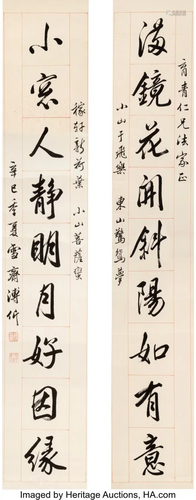 育青仁兄法家正
滿鏡花開斜陽如有意
小山于飛樂 東山鴛鴦夢
稼軒新荷葉 小山菩薩蠻
小窓人靜明月好因緣
辛巳季夏雪齋溥伒
Imaged by Heritage Auctions, HA.com